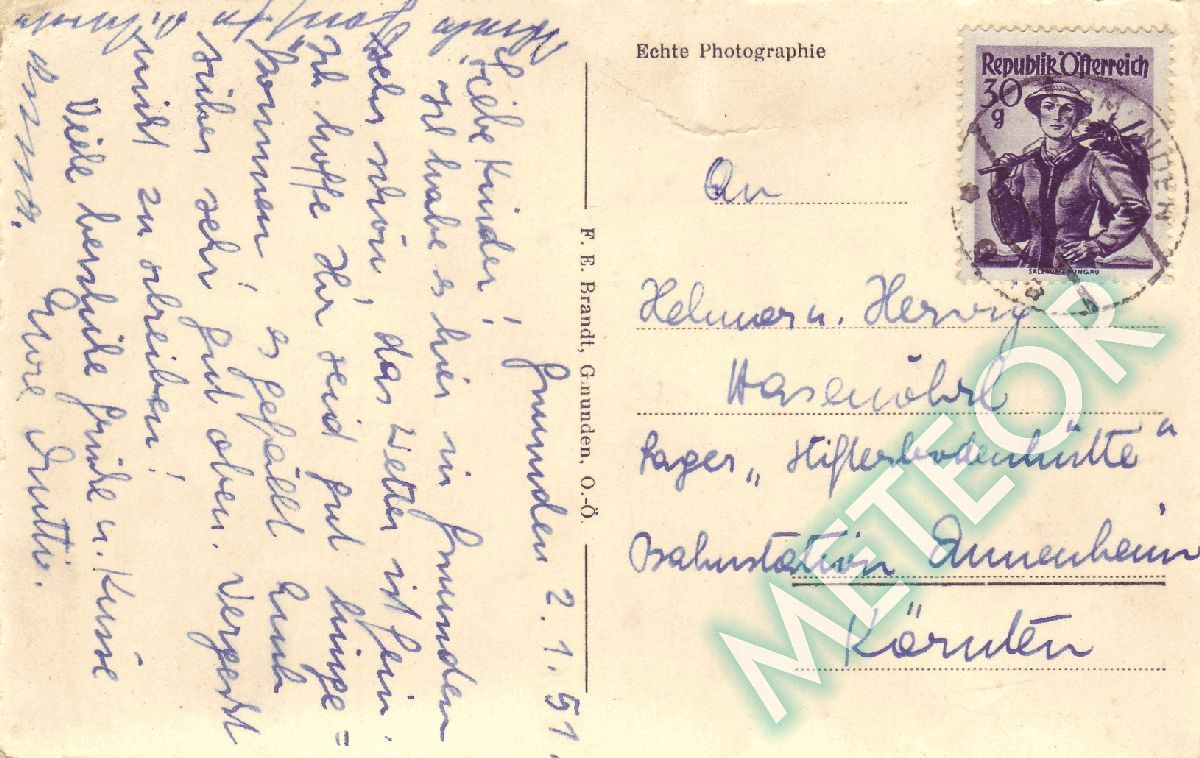 Gmunden 2.1.51.
Liebe Kinder!
Ich habe es hier in Gmunden
sehr schön, das Wetter ist fein.
Ich hoffe Ihr seid gut hinge=
kommen, es gefällt Euch
sicher sehr gut oben. Vergesst
nicht zu schreiben!
Viele herzliche Grüße u. Küsse
Eure Mutti.
F. E. Brandt, Gmunden, O.-Ö.
Echte Photographie
Republik Österreich
30
g
SALZBURG LUNGAU
GMUNDEN
An
Helmar u. Herwig
Hasenöhrl
Lager „
Bahnstation Annenheim
Kärnten
METEOR